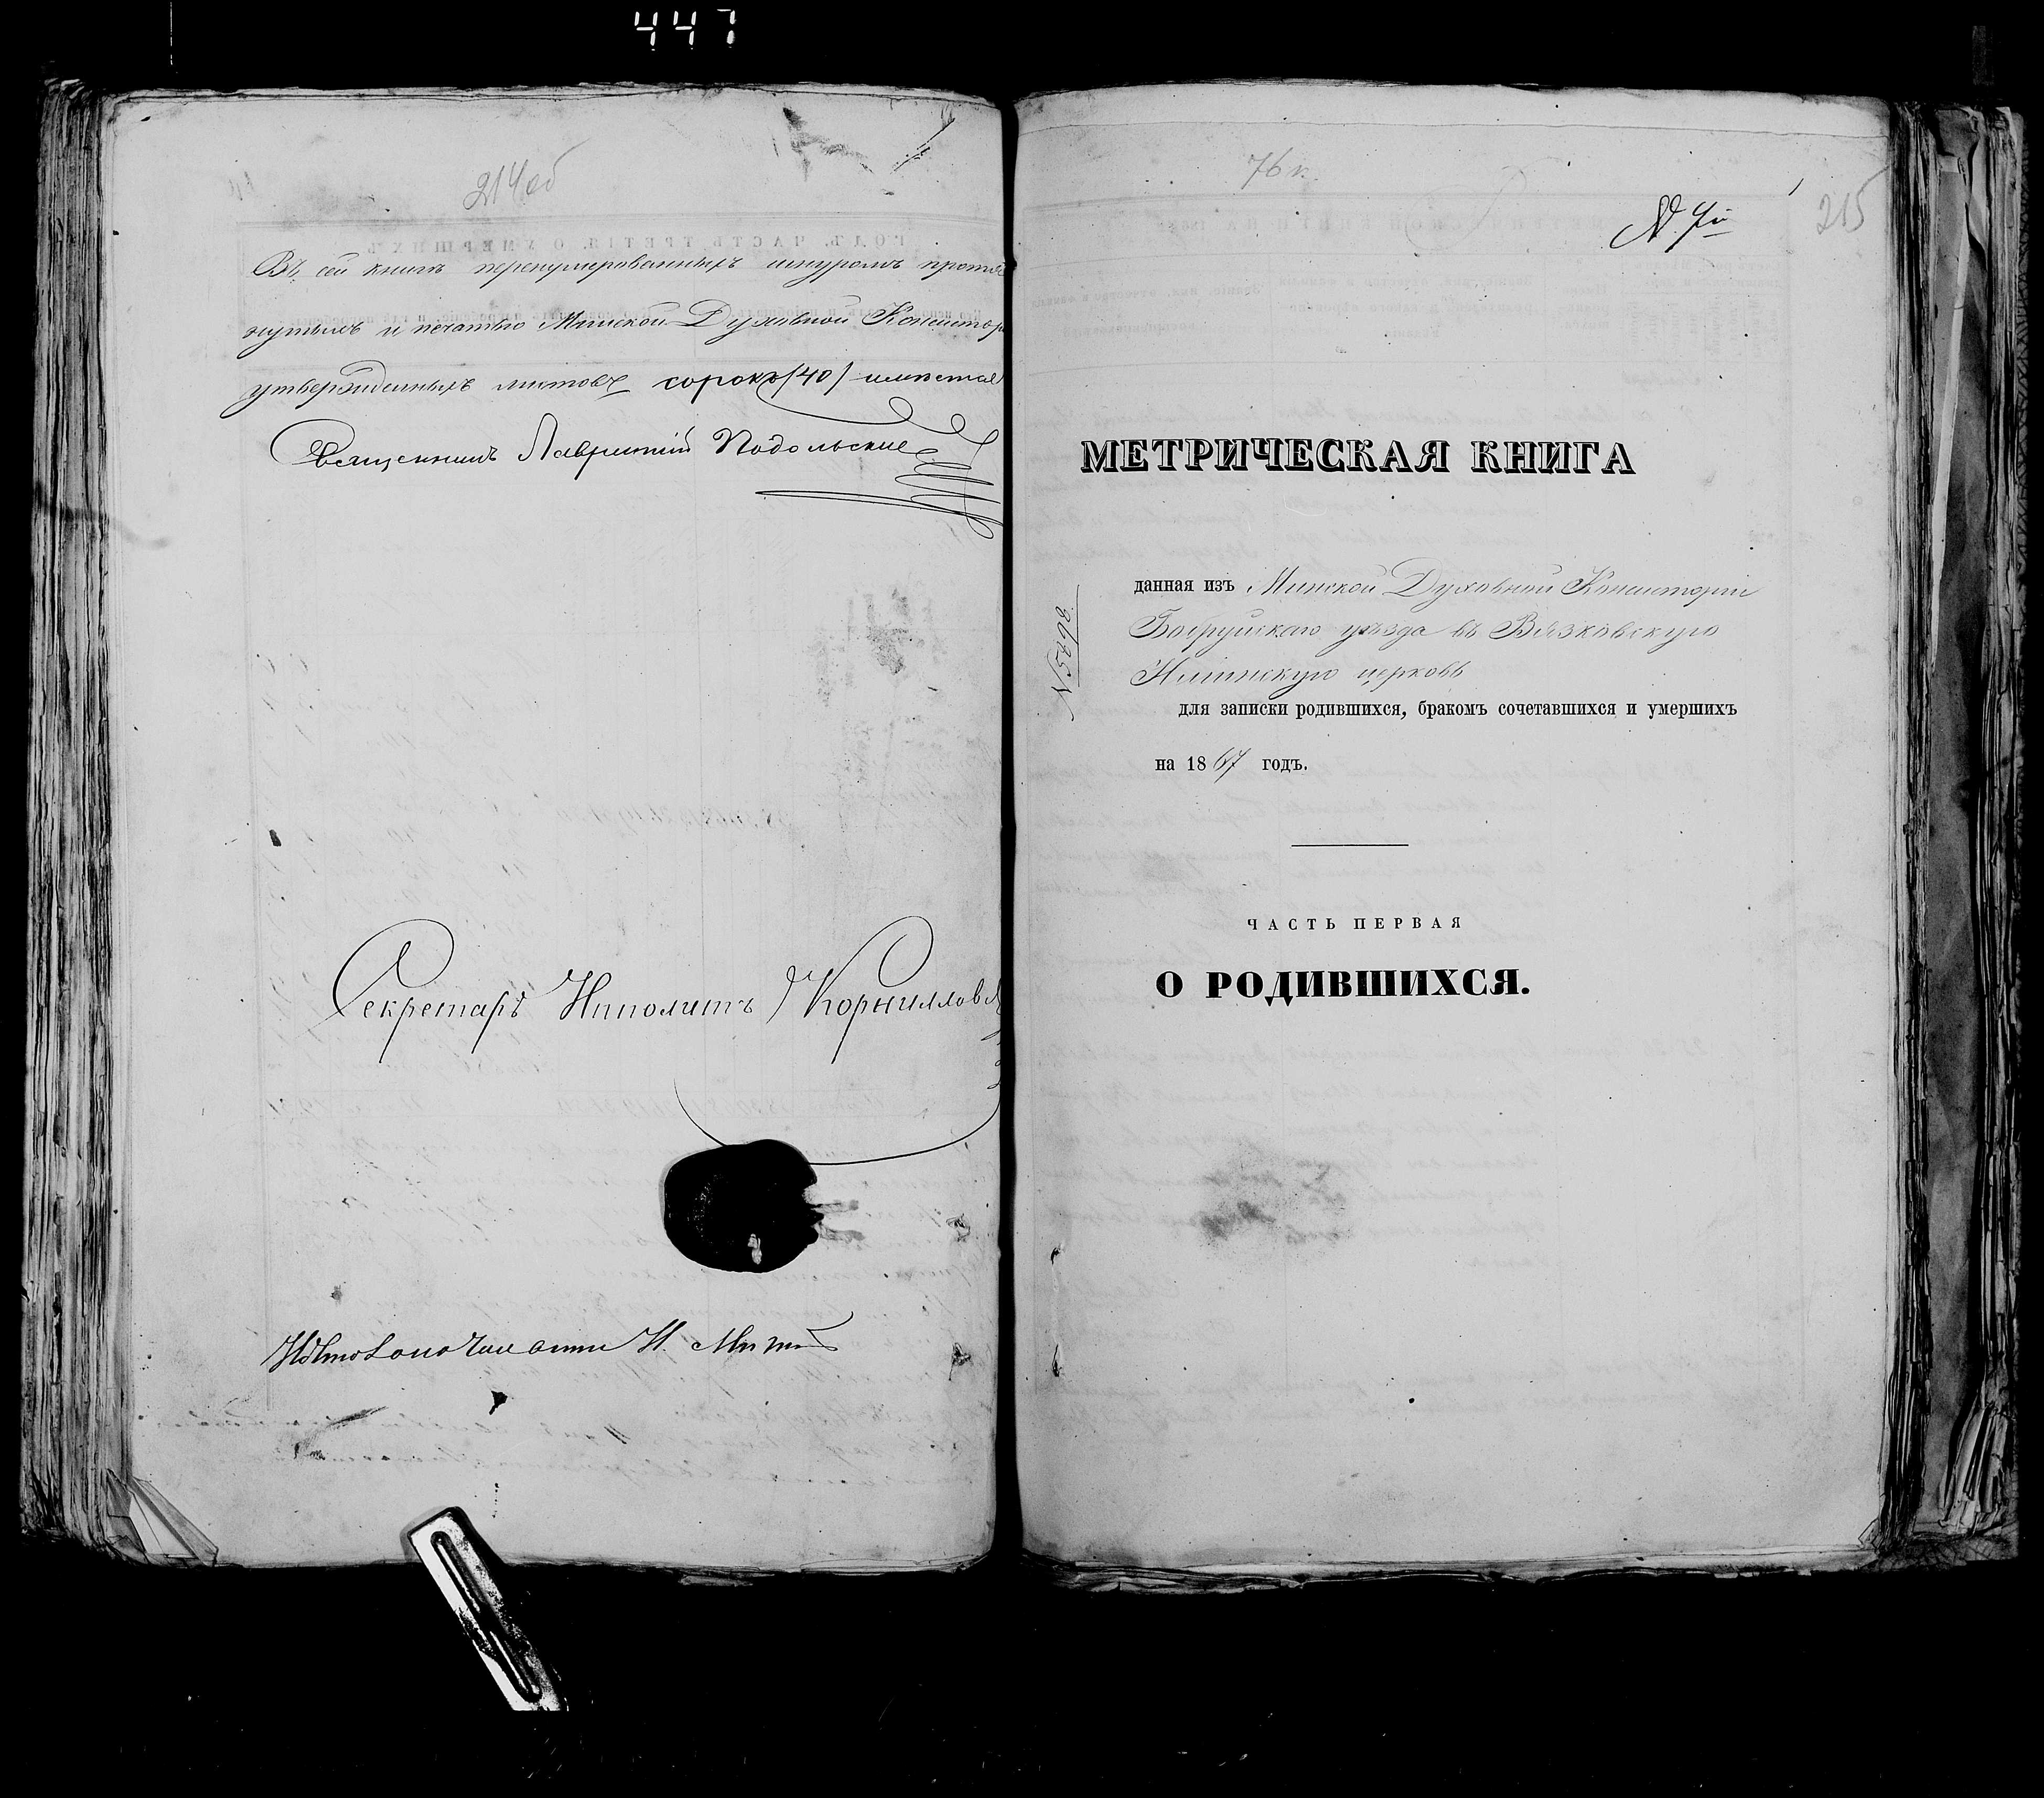 447
214 об
Въ сей книгѣ перенумерованныхъ шнуромъ протя
нутыхъ и печатью Минской Духовной Консистор
утвержденныхъ листовъ сорокъ (40) имѣется
Священникъ Лаврентій Подольскій
Секретарь Ипполитъ Корнилловъ
76 п.
215
N. 4й
МЕТРИЧЕСКАЯ КНИГА
данная изъ Минской Духовной Консисторіи
Бобруйскаго уѣзда въ Вязковскую
церковь
N 5498
для записки родившихся, бракомъ сочетавшихся и умершихъ
на 1867 годъ.
ЧАСТЬ ПЕРВАЯ
О РОДИВШИХСЯ.